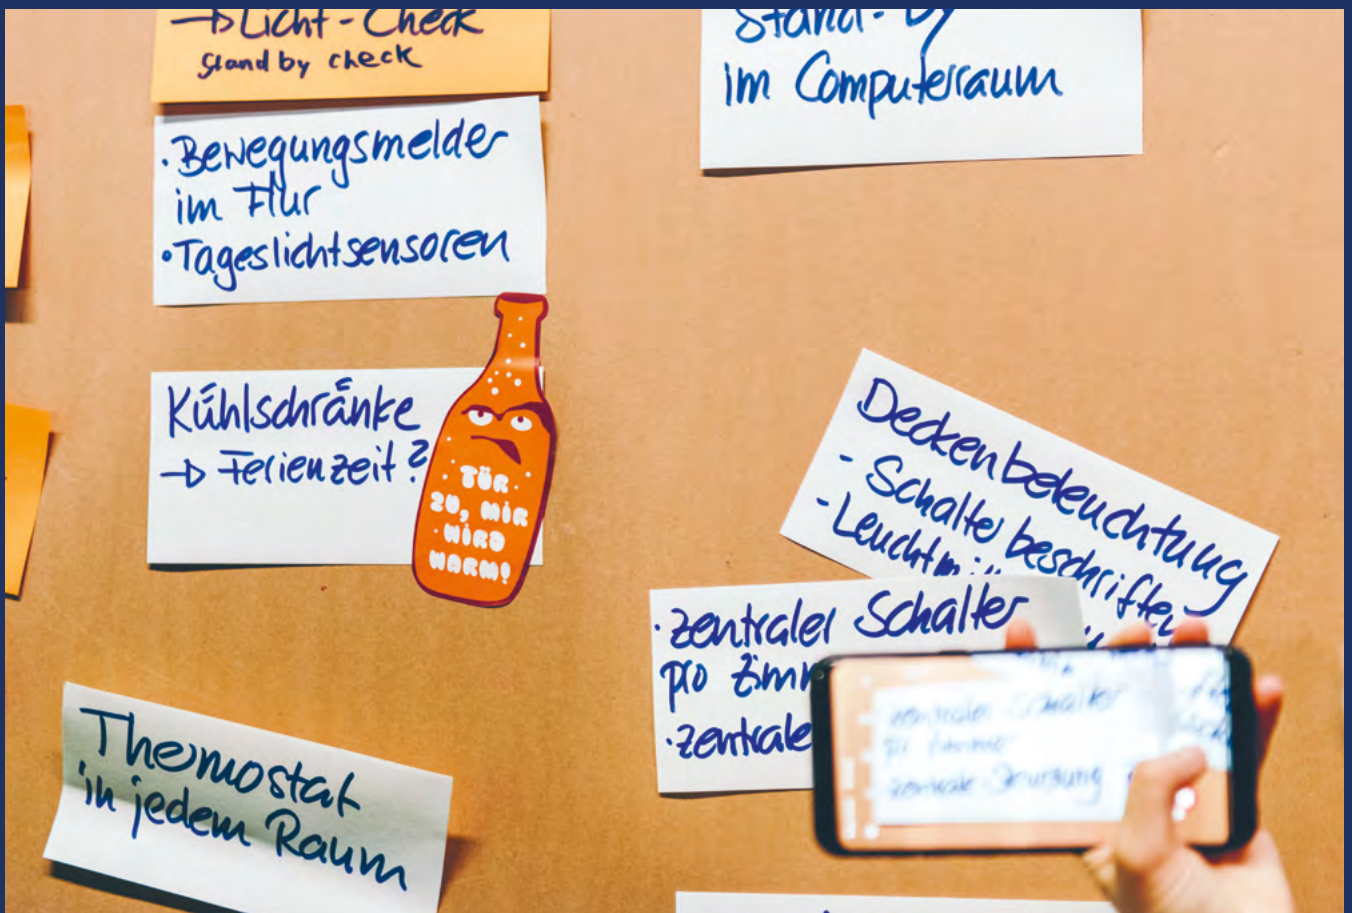 → Licht-Check
Stand by check
Stand-by
im Computerraum
·Bewegungsmelder
im Flur
·Tageslichtsensoren
Kühlschränke
→ Ferienzeit?
TÜR
ZU, MIR
WIRD
WARM!
Deckenbeleuchtung
- Schalter beschriften
-
·zentraler Schalter
pro
·zentrale
zentraler Schalter
pro Zimmer
zentrale Steuerung
Thermostat
in jedem Raum